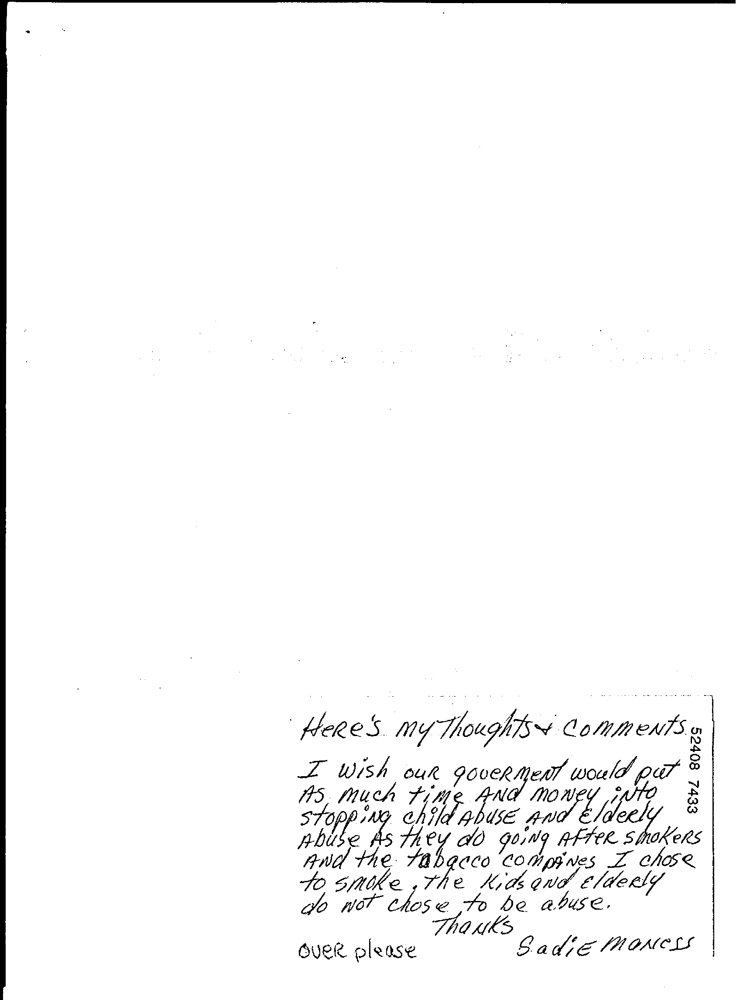 Here's my Thoughts & Comments.
I wish our goverment would put
As much time And money into
stopping child Abuse And Elderly
Abuse As they do going After smokers
And the tabacco compaines I chose
to smoke, the kids and elderly
do not chose to be abuse.
Thanks
over please Sadie Maness
52408 7433